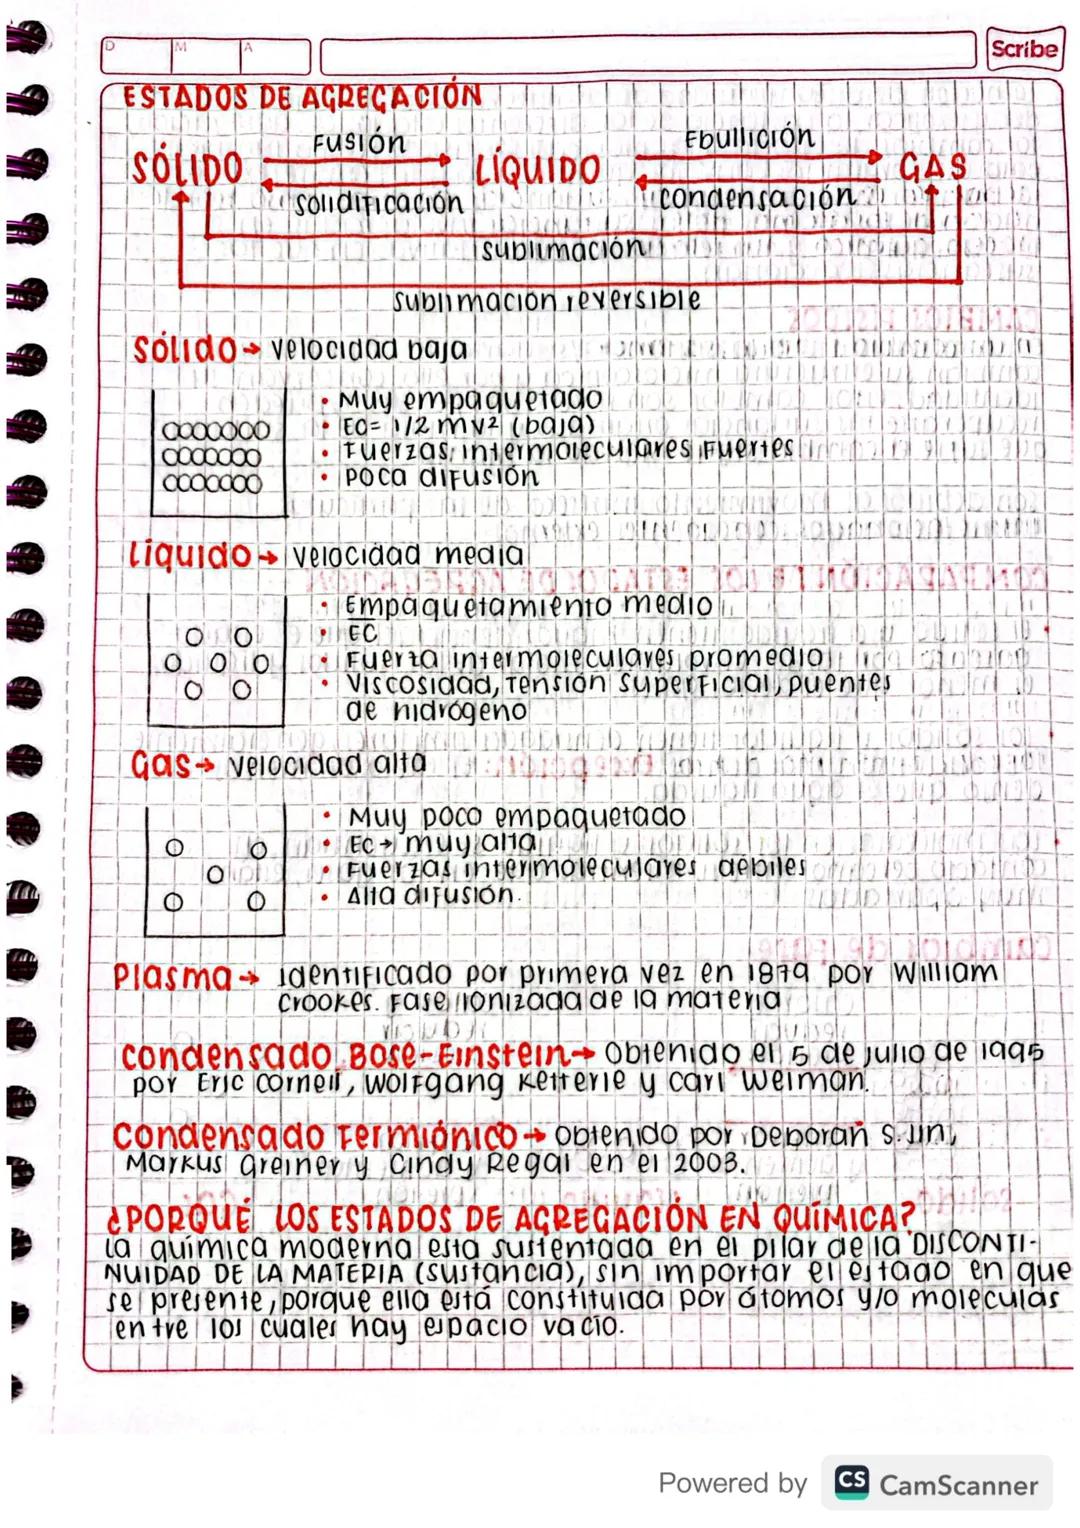 D M A
Scribe
ESTADOS DE AGREGACIÓN
Fusión Ebullición
SÓLIDO LÍQUIDO GAS
solidificación condensación
sublimación
sublimación reversible
Sólido→ velocidad baja
• Muy empaquetado
• EC= 1/2 mv² (baja)
• Fuerzas intermoleculares Fuertes
• poca difusión
Líquido→ velocidad media
• Empaquetamiento medio
• EC
• Fuerza intermoleculares promedio
• Viscosidad, Tensión superficial, puentes
de hidrógeno
Gas→ velocidad alta
• Muy poco empaquetado
• Ec→ muy alta
• Fuerzas intermoleculares débiles
• Alta difusión.
Plasma→ Identificado por primera vez en 1879 por William
Crookes. Fase ionizada de la materia
condensado Bose-Einstein→ Obtenido el 5 de julio de 1995
por Eric Cornell, Wolfgang Ketterle y carl Weiman.
Condensado Fermiónico→ obtenido por Deborah S. Jin,
Markus Greiner y Cindy Regal en el 2003.
¿PORQUÉ LOS ESTADOS DE AGREGACIÓN EN QUÍMICA?
La química moderna esta sustentada en el pilar de la DISCONTI-
NUIDAD DE LA MATERIA (sustancia), sin importar el estado en que
se presente, porque ella está constituida por átomos y/o moléculas
entre los cuales hay espacio vacío.
Powered by CS CamScanner